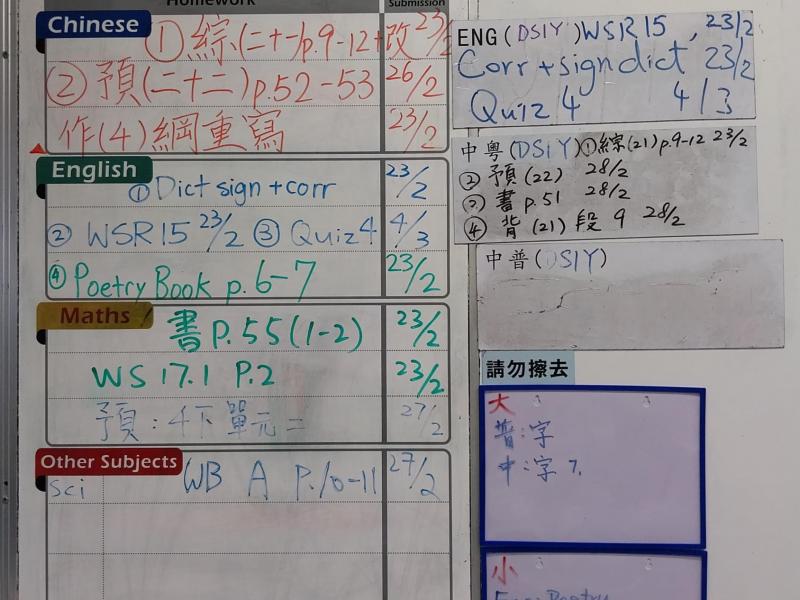 Homework
Submission
Chinese
①綜(二十一)p.9-12+改 23/2
②預(二十二)p.52-53 26/2
作(4)綱重寫 23/2
English
①Dict sign+corr 23/2
②WSR15 23/2 ③Quiz4 4/3
④Poetry Book p.6-7 23/2
Maths
書P.55(1-2) 23/2
WS 17.1 P.2 23/2
預:4下單元二 27/2
Other Subjects
Sci WB A P.10-11 27/2
ENG(DSIY)WSR15, 23/2
Corr+sign dict 23/2
Quiz 4 4/3
中粵(DSIY)①綜(21)p.9-12 23/2
②預(22) 28/2
③書p.51 28/2
④背(21)段9 28/2
中普(DSIY)
請勿擦去
大
普:字
中:字7.
小
Poetry